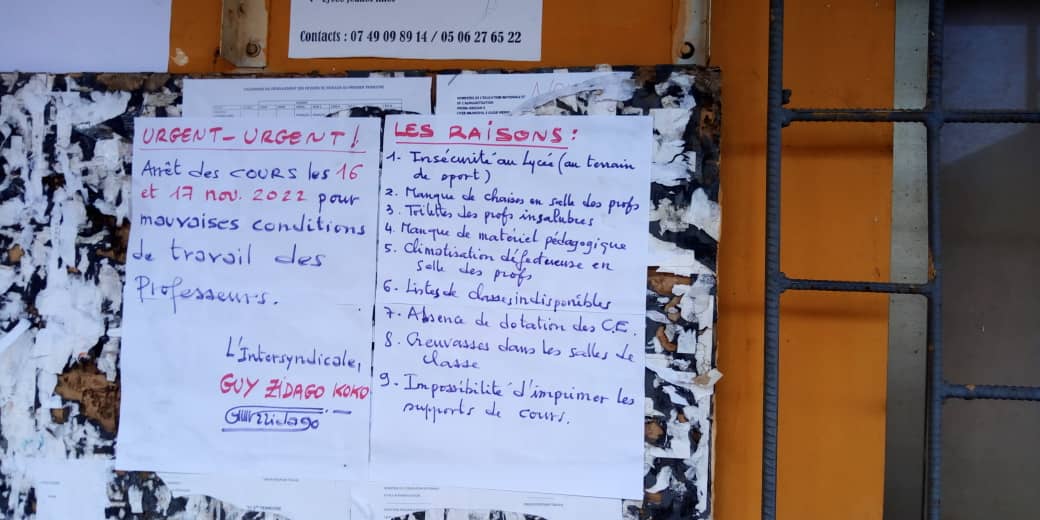 Contacts : 07 49 09 89 14 / 05 06 27 65 22
URGENT-URGENT!
Arrêt des COURS les 16
et 17 nov. 2022 pour
mauvaises conditions
de travail des
Professeurs.
L'Intersyndicale,
GUY ZIDAGO KOKO
LES RAISONS :
1- Insécurité au Lycée (au terrain
de sport)
2. Manque de chaises en salle des profs
3. Toilettes des profs insalubres
4. Manque de matériel pédagogique
5. Climatisation défectueuse en
salle des profs
6. Listes de classes indisponibles
7. Absence de dotation des C.E.
8. Creuvasses dans les salles de
classe
9. Impossibilité d'imprimer les
supports de cours.